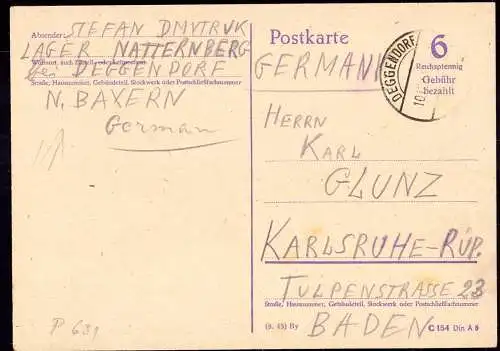 Absender: STEFAN DMYTRUK
LAGER NATTERNBERG
Wohnort, auch Zustell- oder Leitpostamt
bei DEGGENDORF
Straße, Hausnummer, Gebäudeteil, Stockwerk oder Postschließfachnummer
N. BAYERN
German
P 631
Postkarte
6
Reichspfennig
Gebühr
bezahlt
GERMANI
DEGGENDORF
10
HERRN
KARL
GLUNZ
KARLSRUHE-RÜP.
TULPENSTRASSE 23
Straße, Hausnummer, Gebäudeteil, Stockwerk oder Postschließfachnummer
BADEN
(9. 45) By
C 154 Din A 6